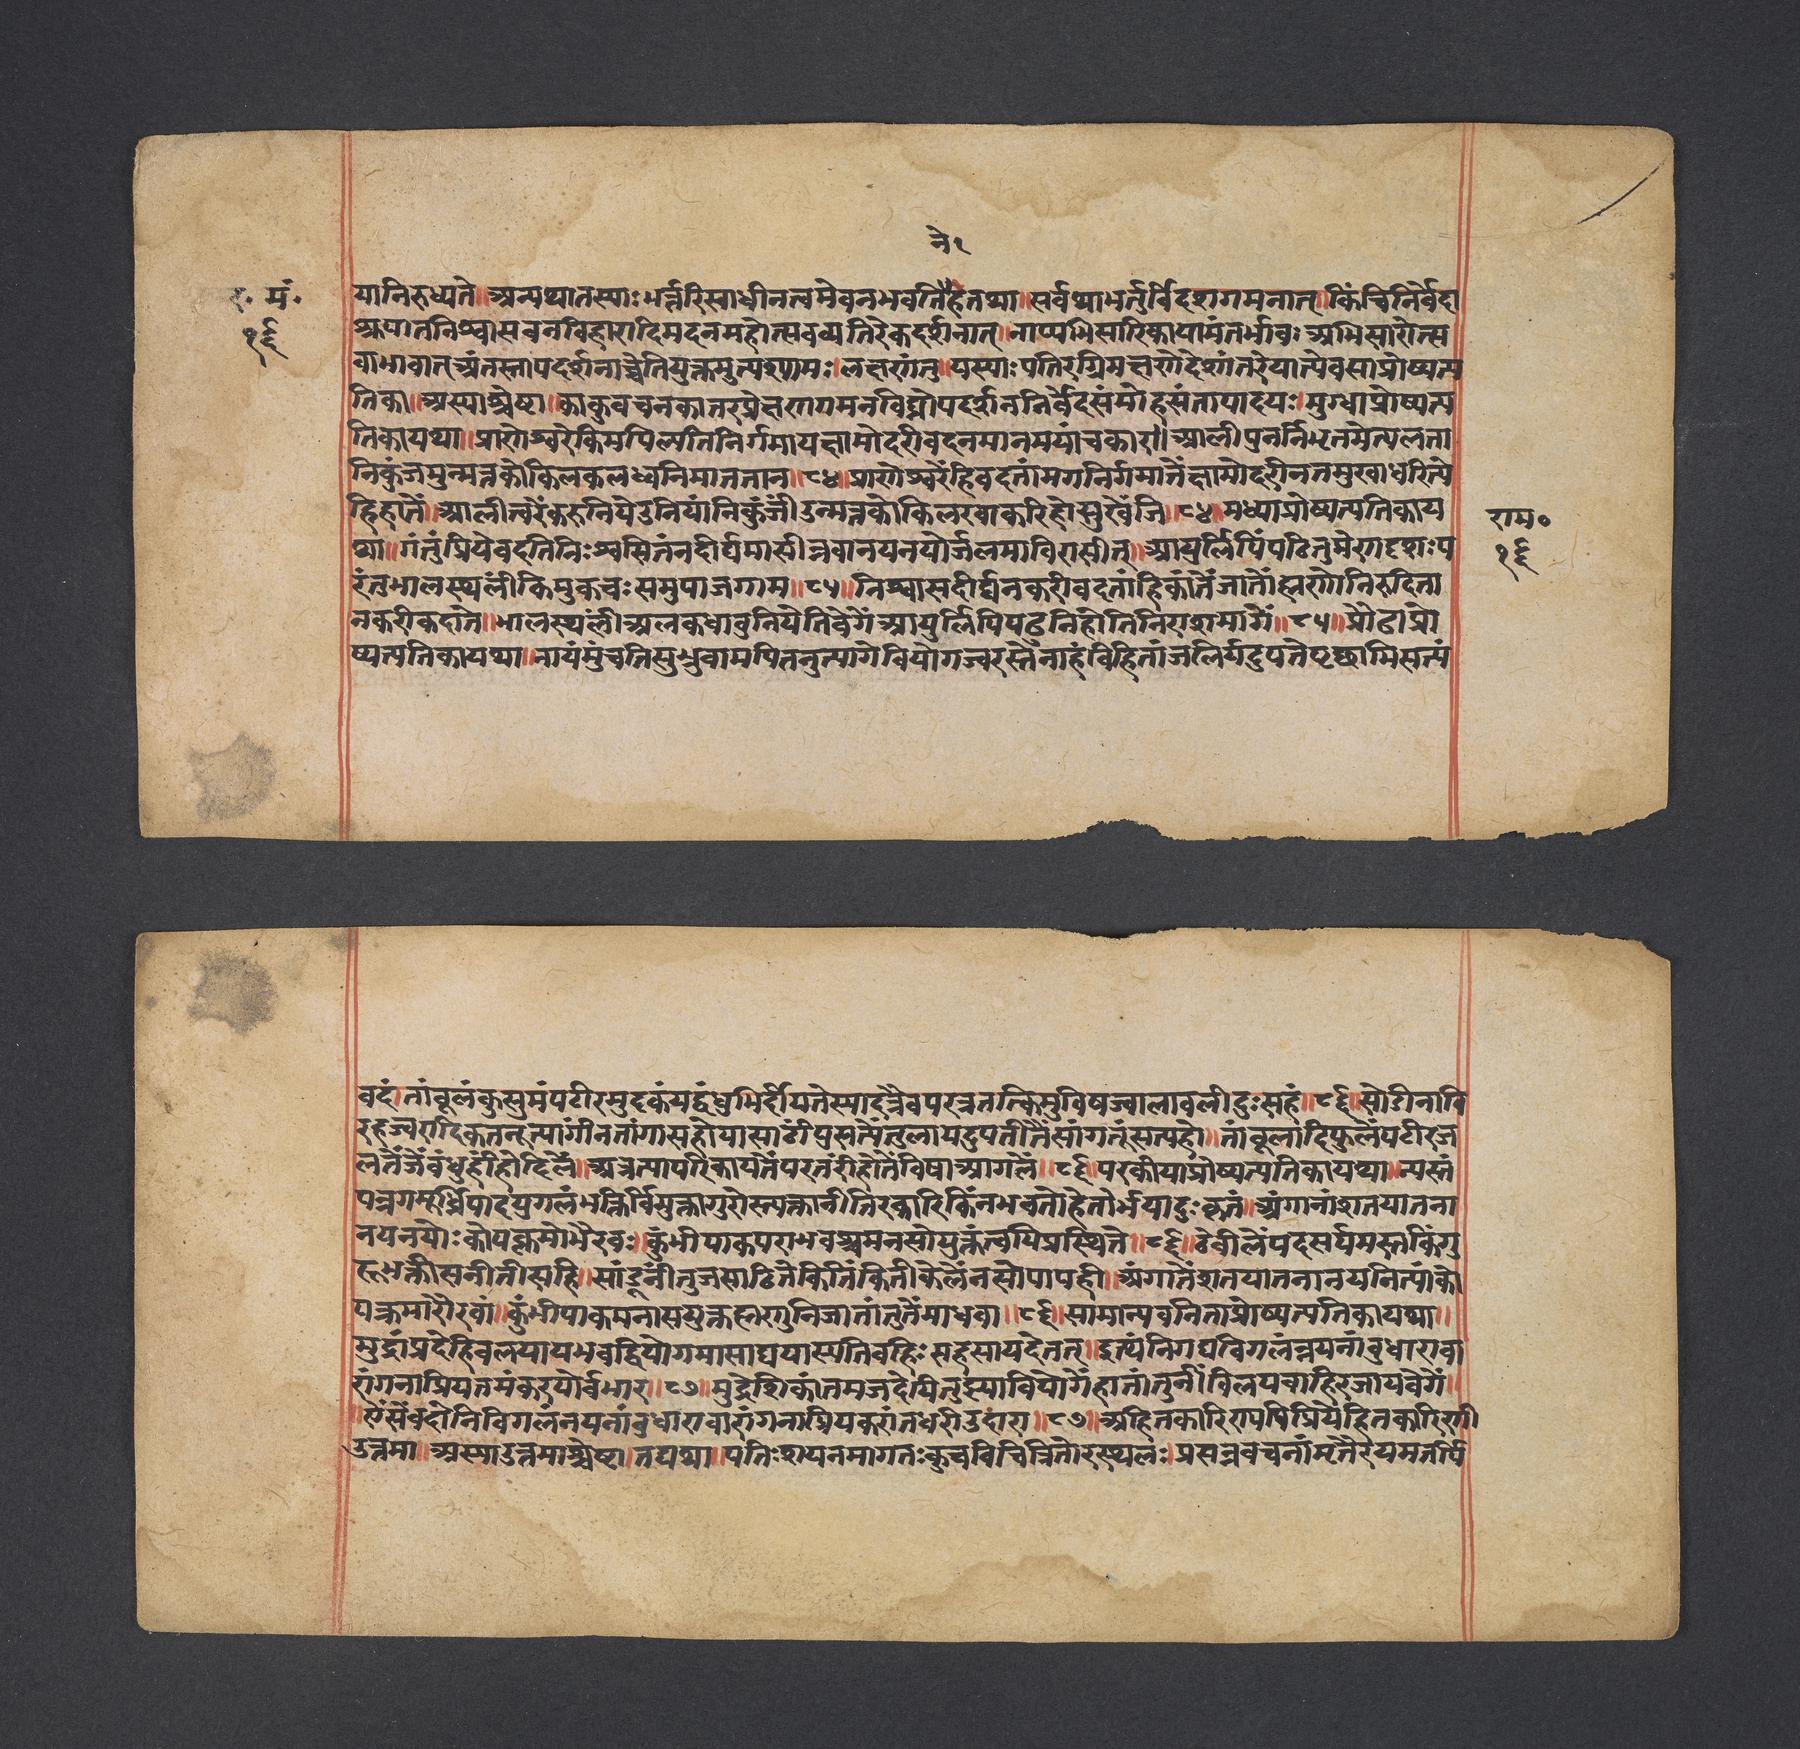 ने१
र. मं.
१६
यानिरुध्यते॥अन्यथातस्याःभर्त्तरिस्वाधीनत्वमेवनभवतिहेतथा॥सर्वथाभर्तुर्विदेशगमनात्॥किंचिनिर्वेदा
श्रुपातनिश्वासवनविहारादिमदनमहोत्सवव्यतिरेकदर्शनात्॥नाप्यभिसारिकायामंतर्भावः॥अभिसारोत्स
वाभावात्अंतस्तापदर्शनाच्चेतियुक्तमुत्पश्यामः॥लक्षणंतु॥यस्याःपतिरग्रिमक्षणेदेशांतरेयात्येवसाप्रोष्यत्प
तिका॥अस्याश्चेष्टा॥काकुवचनकातरप्रेक्षणगमनविघ्नोपदर्शननिर्वेदसंमोहसंतापादयः॥मुग्धाप्रोष्यत्प
तिकायथा॥प्राणेश्वरेकिमपिलपतिनिर्गमायक्षामोदरीवदनमानमयांचकार॥आलीपुनर्निभृतमेत्यलता
निकुंजमुन्मत्तकोकिलकलध्वनिमाततान॥८४॥प्राणेश्वरेंहिवदतांमगनिर्गमातेंक्षामोदरीनतमुखाधरित्ये
हिहातें॥आलीत्वरेंकरुनियेउनियांनिकुंजीं॥उन्मत्तकोकिलरवाकरिहोसुखेंजि॥८४॥मध्याप्रोष्यत्पतिकाय
था॥गंतुंप्रियेवदतिनिःश्वसितंनदीर्घमासीन्नवानयनयोर्जलमाविरासीत्॥आयुर्लिपिंपठितुमेणदृशःप
रंतुभालस्थलींकिमुकचःसमुपाजगाम॥८५॥निश्वासदीर्घनकरीवदतांहिकांतेंजातोंह्मणोनिरुदिता
नकरीकदाते॥भालस्थलींअलकधावुनियेतिवेगेंआयुर्लिपिपढनिहोतिनिराशमागें॥८५॥प्रौढाप्रो
ष्यत्पतिकायथा॥नायंमुंचतिसुभ्रुवामपितनुत्यागेवियोगज्वरस्तेनाहंविहितांजलिर्यदुपतेपृच्छामिसत्यं
राम॰
१६
वद॥तांबूलंकुसुमंपटीरमुदकंयद्बंधुभिर्दीयतेस्यादत्रैवपरत्रतत्किमुविषज्वालावलीदुःसहं॥८६॥सोडीनावि
रहज्वरादिकतनूत्यागींनतांगासहोयासाठींपुसत्येंतुलायदुपतीतैसांगतूंसत्यहो॥तांबूलादिफुलेंपटीरज
लतेंजेंबंधुहींहोदिलें॥अत्रत्यापरिकायतेंपरतरींहोतेंविषाआगलें॥८६॥परकीयाप्रोष्यत्पतिकायथा॥न्यस्तं
पन्नगमूर्ध्निपादयुगलंभक्तिर्विमुक्तागुरोस्त्यक्तानीतिरकारिकिंनभवतोहेतोर्मयादुःकृतं॥अंगानांशतयातना
नयनयोःकोपक्रमोरौरवः॥कुंभीपाकपराभवश्चमनसोयुक्तंत्वयिप्रस्थिते॥८६॥ठेवीलेंपदसर्पमस्तकिंगु
रूभक्तीसनीतीसहि॥सांडूनीतुजसाठितेकितिंकितीकेलेंनसोपापही॥अंगातेंशतयातनानयनित्यांको
पक्रमारौरवां॥कुंभीपाकमनासयुक्तह्मणुनिजातांतुतेंमाधवा॥८६॥सामान्यवनिताप्रोष्यत्पतिकायथा॥
मुद्रांप्रदेहिवलयायभवद्वियोगमासाद्ययास्यतिबहिःसहसायदेतत्॥इत्थंनिगद्यविगलंन्नयनांबुधारावा
रांगनाप्रियतमंकरयोर्बभार॥८७॥मुद्रेशिकांतमजदेयितुझ्यावियोगेंहातांतुनींविलयबाहिरजायवेगें॥
॥हेंसेंवदोनिविगलंनयनांबुधारावारांगनाप्रियकरांतधरीउदारा॥८७॥अहितकारिण्यपिप्रियेहितकारिणी
उत्तमा॥अस्याउत्तमाश्चेष्टा॥तद्यथा॥पतिःशयनमागतःकुचविचित्रितोरस्थलः॥प्रसन्नवचनामृतैरयमतर्पि